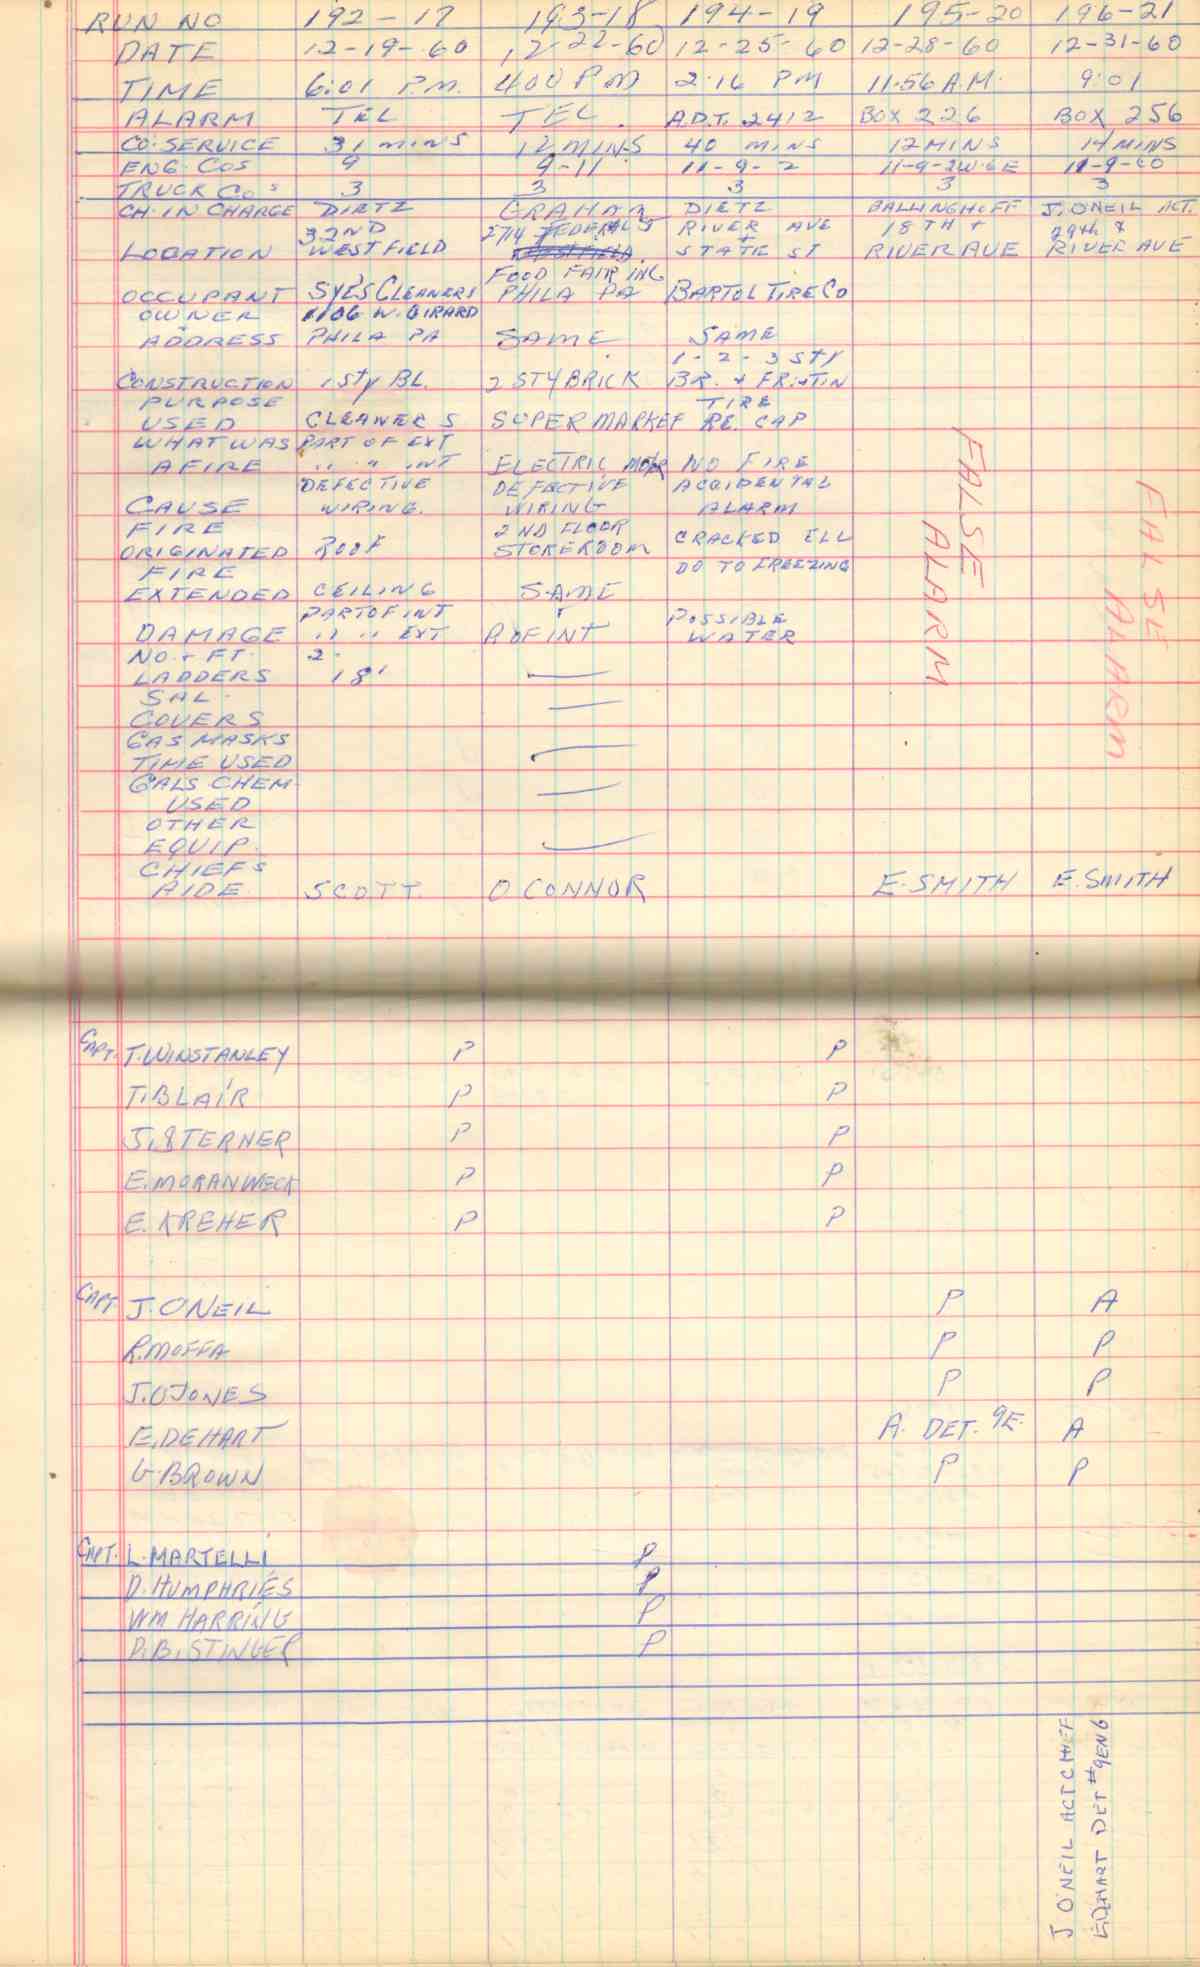 RUN NO 192-17 193-18 194-19 195-20 196-21
DATE 12-19-60 12-22-60 12-25-60 12-28-60 12-31-60
TIME 6:01 P.M. 400 PM 2:16 PM 11:56 A.M. 9:01
ALARM TEL TEL. A.D.T. 2412 BOX 226 BOX 256
CO. SERVICE 31 MINS 12 MINS 40 MINS 12 MINS 14 MINS
ENG. COS 9 9-11 11-9-2 11-9-2W-6E 11-9-
TRUCK COS 3 3 3 3 3
CH. IN CHARGE DIETZ GRAHAM DIETZ BALLINGHOFF J. ONEIL ACT.
32ND 2714 FEDERAL ST RIVER AVE 18TH + 29th &
LOCATION WESTFIELD + STATE ST RIVER AVE RIVER AVE
FOOD FAIR INC
OCCUPANT SYL'S CLEANERS PHILA PA BARTOL TIRE CO
OWNER 1106 W. GIRARD
ADDRESS PHILA PA SAME SAME
1-2-3 STY
CONSTRUCTION 1 STY BL. 2 STY BRICK BR. + FR.+TIN
PURPOSE TIRE
USED CLEANERS SUPER MARKET RE. CAP
WHAT WAS PART OF EXT
AFIRE " " INT ELECTRIC MOTOR NO FIRE
DEFECTIVE DEFECTIVE ACCIDENTAL
CAUSE WIRING. WIRING ALARM
FIRE 2ND FLOOR
ORIGINATED ROOF STOREROOM CRACKED ELL
FIRE DO TO FREEZING
EXTENDED CEILING SAME
PART OF INT POSSIBLE
DAMAGE " " EXT P. OF INT WATER
NO. + FT. 2-
LADDERS 18' —
SAL.
COVERS —
GAS MASKS
TIME USED —
GALS CHEM. —
USED
OTHER
EQUIP. —
CHIEFS
AIDE SCOTT. O CONNOR E. SMITH E. SMITH
FALSE
ALARM
FALSE
ALARM
CAPT. T. WINSTANLEY P P
T. BLAIR P P
J. STERNER P P
E. MORANWECK P P
E. KREHER P P
CAPT. J. O'NEIL P A
R. MOFFA P P
J. O JONES P P
E. DEHART A. DET. 9E. A
G. BROWN P P
CAPT. L. MARTELLI P
D. HUMPHRIES P
WM HARRING P
D. B. STINGER P
J O'NEIL ACT CHIEF
E. DEHART DET #9ENG